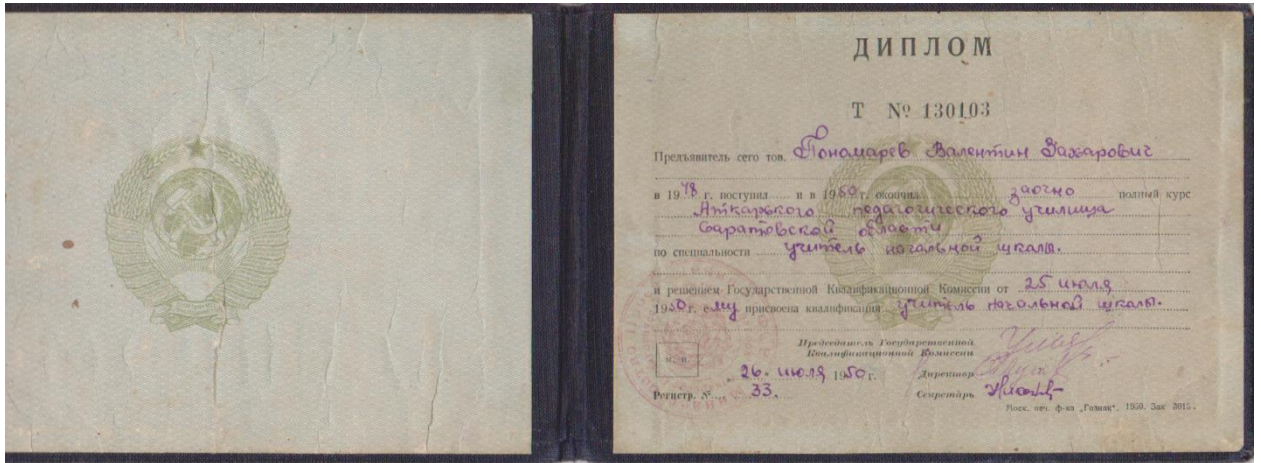 ДИПЛОМ
Т № 130103
Предъявитель сего тов. Пономарев Валентин Захарович
в 1948 г. поступил и в 1950 г. окончил заочно полный курс
Аткарского педагогического училища
Саратовской области
по специальности учитель начальной школы.
и решением Государственной Квалификационной Комиссии от 25 июля
1950 г. ему присвоена квалификация учитель начальной школы.
Председатель Государственной
Квалификационной Комиссии
М. П.
26. июля 1950 г. Директор
Регистр. № 33. Секретарь
Моск. печ. ф-ка „Гознак“. 1950. Зак